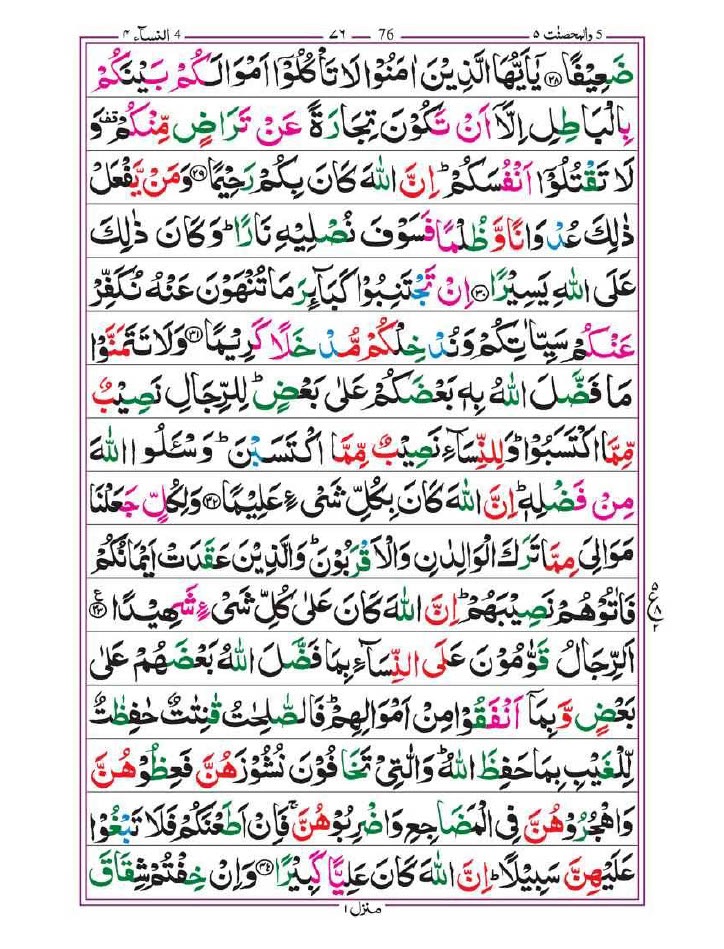 5 والمحصنٰت ۵ — 76 — ۷۶ — 4 النسآء ۴
ضَعِیْفًا ﴿۲۸﴾ یٰۤاَیُّهَا الَّذِیْنَ اٰمَنُوْا لَا تَاْكُلُوْۤا اَمْوَالَكُمْ بَیْنَكُمْ
بِالْبَاطِلِ اِلَّاۤ اَنْ تَكُوْنَ تِجَارَةً عَنْ تَرَاضٍ مِّنْكُمْ ۫ وَ
لَا تَقْتُلُوْۤا اَنْفُسَكُمْ ؕ اِنَّ اللّٰهَ كَانَ بِكُمْ رَحِیْمًا ﴿۲۹﴾ وَمَنْ یَّفْعَلْ
ذٰلِكَ عُدْوَانًا وَّظُلْمًا فَسَوْفَ نُصْلِیْهِ نَارًا ؕ وَكَانَ ذٰلِكَ
عَلَی اللّٰهِ یَسِیْرًا ﴿۳۰﴾ اِنْ تَجْتَنِبُوْا كَبَآىِٕرَ مَا تُنْهَوْنَ عَنْهُ نُكَفِّرْ
عَنْكُمْ سَیِّاٰتِكُمْ وَنُدْخِلْكُمْ مُّدْخَلًا كَرِیْمًا ﴿۳۱﴾ وَلَا تَتَمَنَّوْا
مَا فَضَّلَ اللّٰهُ بِهٖ بَعْضَكُمْ عَلٰی بَعْضٍ ؕ لِلرِّجَالِ نَصِیْبٌ
مِّمَّا اكْتَسَبُوْا ؕ وَلِلنِّسَآءِ نَصِیْبٌ مِّمَّا اكْتَسَبْنَ ؕ وَسْـَٔلُوا اللّٰهَ
مِنْ فَضْلِهٖ ؕ اِنَّ اللّٰهَ كَانَ بِكُلِّ شَیْءٍ عَلِیْمًا ﴿۳۲﴾ وَلِكُلٍّ جَعَلْنَا
مَوَالِیَ مِمَّا تَرَكَ الْوَالِدٰنِ وَالْاَقْرَبُوْنَ ؕ وَالَّذِیْنَ عَقَدَتْ اَیْمَانُكُمْ
فَاٰتُوْهُمْ نَصِیْبَهُمْ ؕ اِنَّ اللّٰهَ كَانَ عَلٰی كُلِّ شَیْءٍ شَهِیْدًا ﴿۳۳﴾ ع
۵ ع ۸ ۲
اَلرِّجَالُ قَوّٰمُوْنَ عَلَی النِّسَآءِ بِمَا فَضَّلَ اللّٰهُ بَعْضَهُمْ عَلٰی
بَعْضٍ وَّبِمَاۤ اَنْفَقُوْا مِنْ اَمْوَالِهِمْ ؕ فَالصّٰلِحٰتُ قٰنِتٰتٌ حٰفِظٰتٌ
لِّلْغَیْبِ بِمَا حَفِظَ اللّٰهُ ؕ وَالّٰتِیْ تَخَافُوْنَ نُشُوْزَهُنَّ فَعِظُوْهُنَّ
وَاهْجُرُوْهُنَّ فِی الْمَضَاجِعِ وَاضْرِبُوْهُنَّ ۚ فَاِنْ اَطَعْنَكُمْ فَلَا تَبْغُوْا
عَلَیْهِنَّ سَبِیْلًا ؕ اِنَّ اللّٰهَ كَانَ عَلِیًّا كَبِیْرًا ﴿۳۴﴾ وَاِنْ خِفْتُمْ شِقَاقَ
منزل ۱